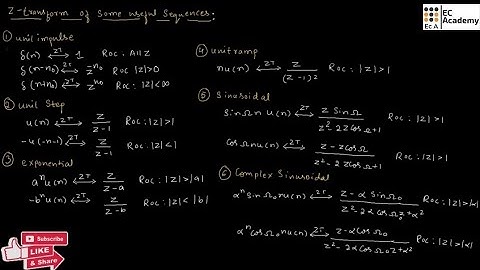 Z-transform of Some useful Sequences:
EC Academy
① unit impulse
δ(n) ⟷ZT 1 Roc: All Z
δ(n-n₀) ⟷ZT z^-n₀ Roc |z|>0
δ(n+n₀) ⟷ZT z^n₀ Roc: |z|<∞
② unit Step
u(n) ⟷ZT z/(z-1) Roc: |z|>1
-u(-n-1) ⟷ZT z/(z-1) Roc: |z|<1
③ exponential
aⁿu(n) ⟷ZT z/(z-a) Roc: |z|>|a|
-bⁿu(n) ⟷ZT z/(z-b) Roc: |z|<|b|
④ unit ramp
nu(n) ⟷ZT z/(z-1)² Roc: |z|>1
⑤ Sinusoidal
SinΩn u(n) ⟷ZT
Roc: |z|>1
CosΩn u(n) ⟷ZT
Roc: |z|>1
⑥ Complex Sinusoidal
αⁿSinΩ₀n u(n) ⟷ZT
Roc |z|>|α|
αⁿCosΩ₀n u(n) ⟷ZT
Roc: |z|>|α|
Subscribe
LIKE
& Share